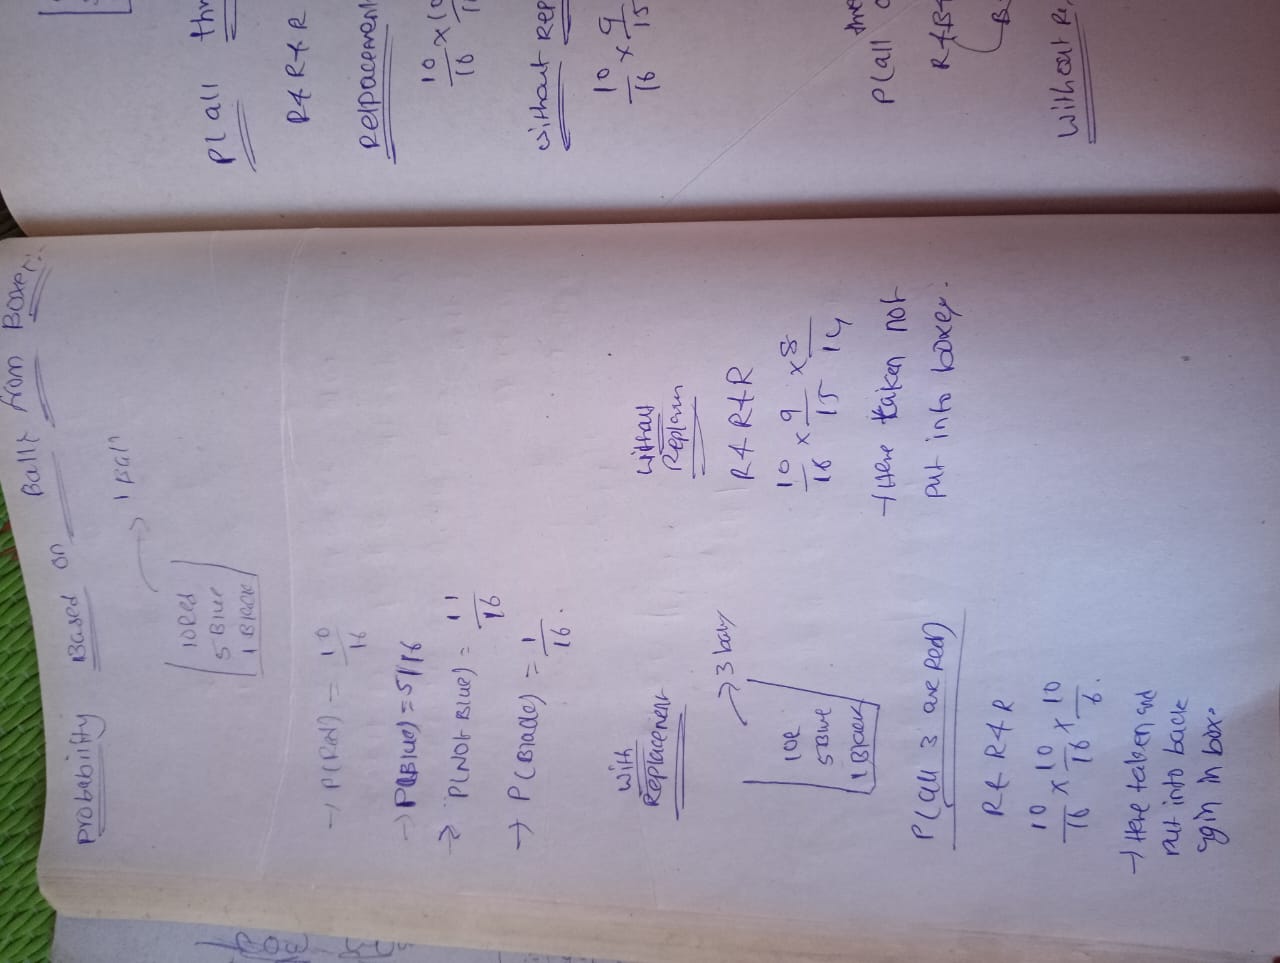 Probability Based on Balls from Boxes.
→ 1 Ball
10 Red
5 Blue
1 Black
→ P(Red) = 10/16
→ P(Blue) = 5/16
→ P(Not Blue) = 11/16
→ P(Black) = 1/16.
With
Replacement
→ 3 balls
10R
5 Blue
1 Black
P(all 3 are Red)
R & R & R
10/16 x 10/16 x 10/6.
→ Here taken and
Put into back
in box.
Without
R & R & R
10/16 x 9/15 x 8/14
→ Here taken not
put into boxes.
P(all
R & R & R
Relpacement
10/16 x 10
Without Rep
10/16 x 9/15
P(all
R & B &
B
Without Re